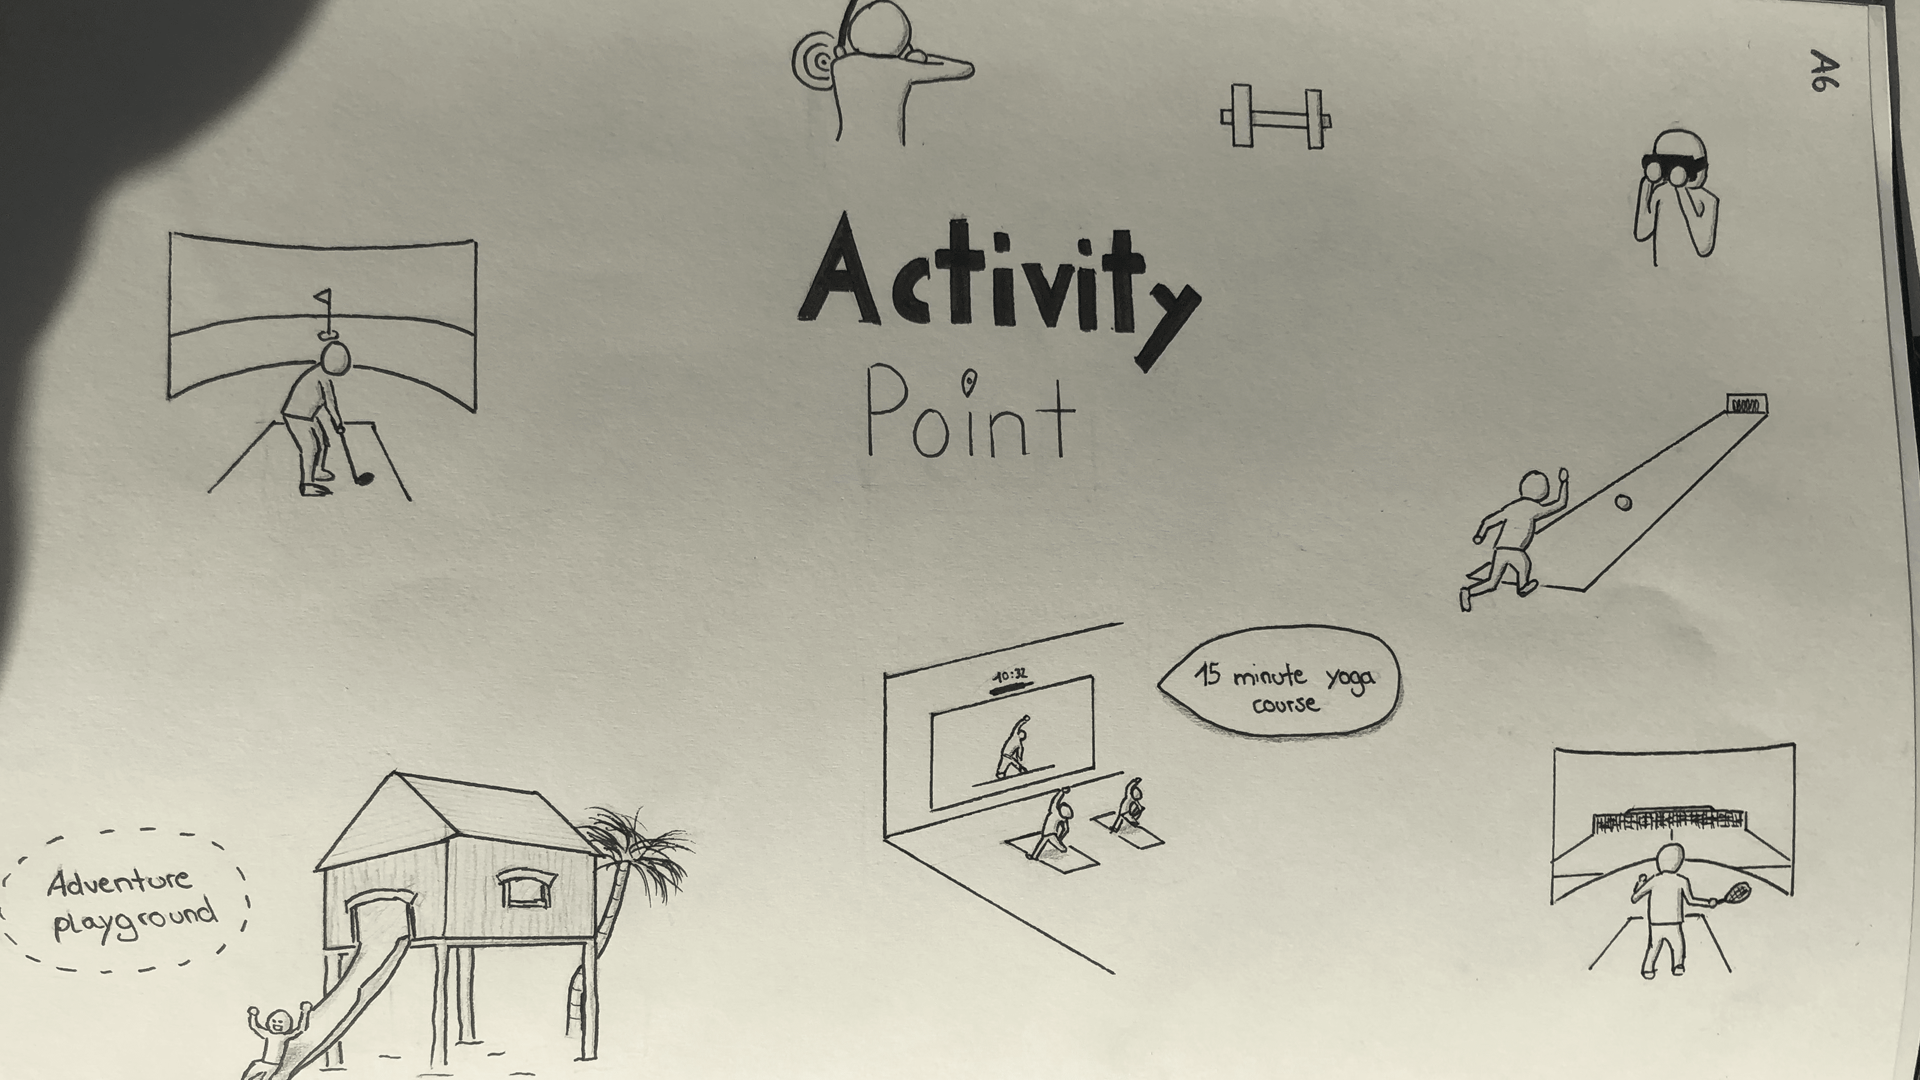 A6
Activity
Point
10:32
15 minute yoga
course
Adventure
playground